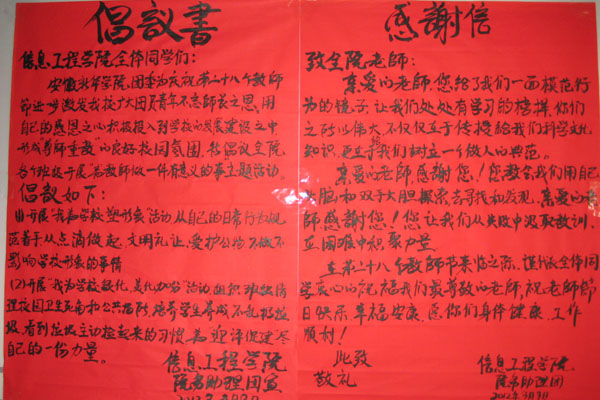 倡议书
信息工程学院全体同学们:
安徽新华学院团委为庆祝第二十八个教师
节进一步激发我校广大团员青年不忘师长之恩,用
自己的感恩之心积极投入到学校的发展建设之中
形成尊师重教的良好校园氛围,特倡议全院
各个班级开展为教师做一件有意义的事主题活动。
倡议如下:
(1)开展"我为学校塑形象"活动从自己的日常行为规
范着手从点滴做起,文明礼让,爱护公物不做不
影响学校形象的事情
(2)开展"我为学校绿化、美化办好"活动组织班级清
理校园卫生死角和公共场所,培养学生养成不乱扔垃
圾,看到垃圾主动捡起来的习惯,为迎评促建尽
自己的一份力量。
信息工程学院
院务助理团宣
感谢信
致全院老师:
亲爱的老师,您给了我们一面模范行
为的镜子,让我们处处有学习的榜样,你们
之所以伟大,不仅仅在于传授给我们科学文化
知识,更在于我们树立一个做人的典范。
亲爱的老师感谢您!您教会我们用自己
大脑和双手大胆探索去寻找和发现,亲爱的老
师感谢您!您让我们从失败中汲取教训,
在困难中积聚力量
在第二十八个教师节来临之际,谨代表全体同
学衷心的祝福我们最尊敬的老师,祝老师节
日快乐,幸福安康,愿你们身体健康,工作
顺利!
此致
敬礼
信息工程学院
院务助理团
2012年9月9日